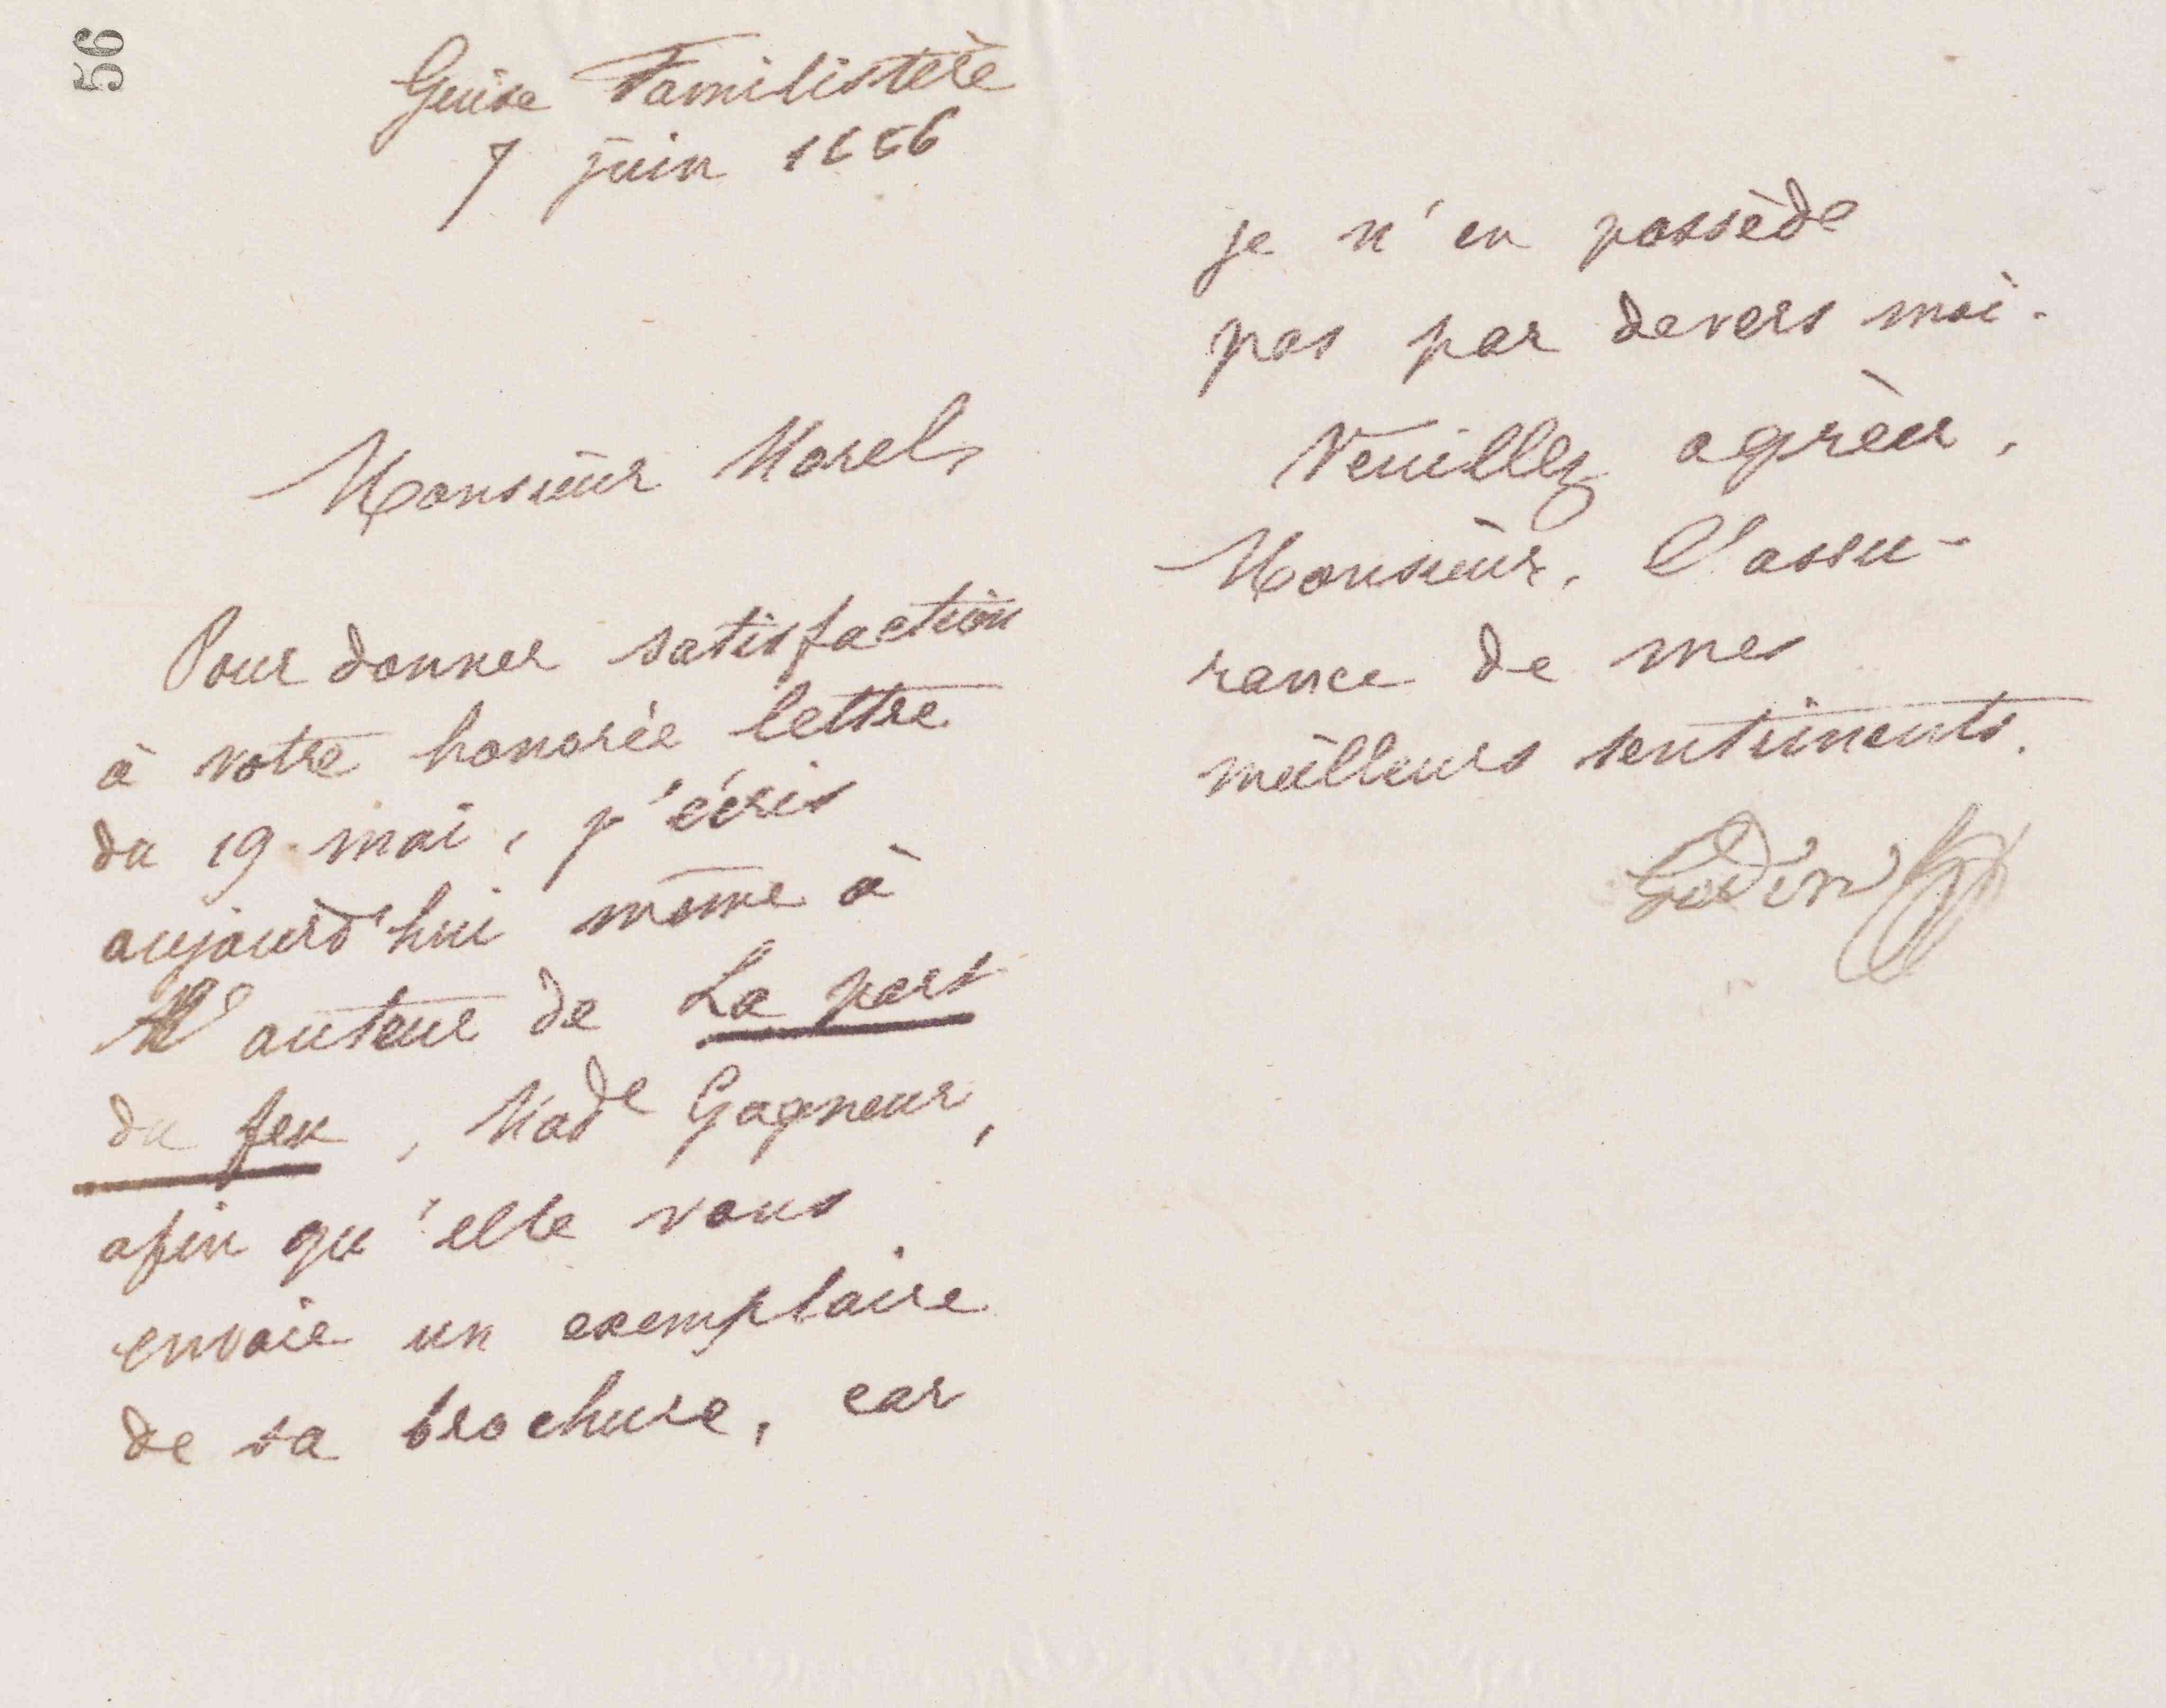 56
Guise Familistère
7 juin 1886
Monsieur Morel,
Pour donner satisfaction
à votre honorée lettre
du 19 mai, j'écris
aujourd'hui même à
l'auteur de La part
du feu, Made Gagneur,
afin qu'elle vous
envoie un exemplaire
de sa brochure, car
je n'en possède
pas par devers moi.
Veuillez agréer,
Monsieur, l'assu-
rance de mes
meilleurs sentiments.
Godin